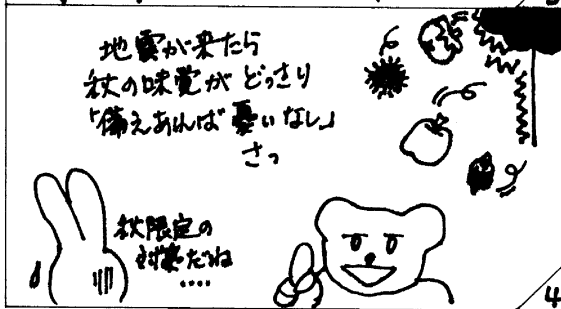 地震が来たら
秋の味覚が どっさり
「備えあれば憂いなし」
さっ
秋限定の
対策だわね
....
4